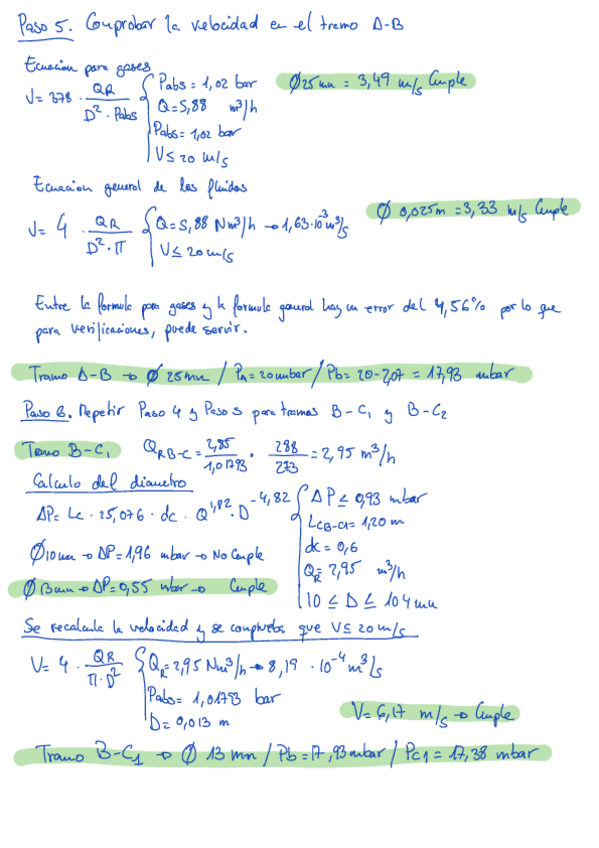 Paso 5. Comprobar la velocidad en el tramo A-B
Ecuacion para gases
V= 378 · QR / D² · Pabs { Pabs = 1,02 bar
Q = 5,88 m³/h
Pabs = 1,02 bar
V ≤ 20 m/s
Ø25 mm = 3,49 m/s Cumple
Ecuacion general de los fluidos
V= 4 · QR / D² · π { Q = 5,88 Nm³/h → 1,63·10⁻³ m³/s
V ≤ 20 m/s
Ø 0,025m = 3,33 m/s Cumple
Entre la formula para gases y la formula general hay un error del 4,56% por lo que
para verificaciones, puede servir.
Tramo A-B → Ø 25mm / PA = 20 mbar / Pb = 20-2,07 = 17,93 mbar
Paso 6. Repetir Paso 4 y Paso 5 para tramos B-C1 y B-C2
Tramo B-C1 QR B-C = 2,85 / 1,01793 · 288 / 273 = 2,95 m³/h
Calculo del diametro
ΔP = Lc · 25,076 · dc · Q^1,82 · D^-4,82 { ΔP ≤ 0,93 mbar
LCB-C1 = 1,20 m
dc = 0,6
QR = 2,95 m³/h
10 ≤ D ≤ 104 mm
Ø10mm → ΔP = 1,96 mbar → No Cumple
Ø13mm → ΔP = 0,55 mbar → Cumple
Se recalcula la velocidad y se comprueba que V ≤ 20 m/s
V= 4 · QR / π · D² { QR = 2,95 Nm³/h → 8,19 · 10⁻⁴ m³/s
Pabs = 1,01793 bar
D = 0,013 m
V = 6,17 m/s → Cumple
Tramo B-C1 → Ø 13 mm / Pb = 17,93 mbar / PC1 = 17,38 mbar